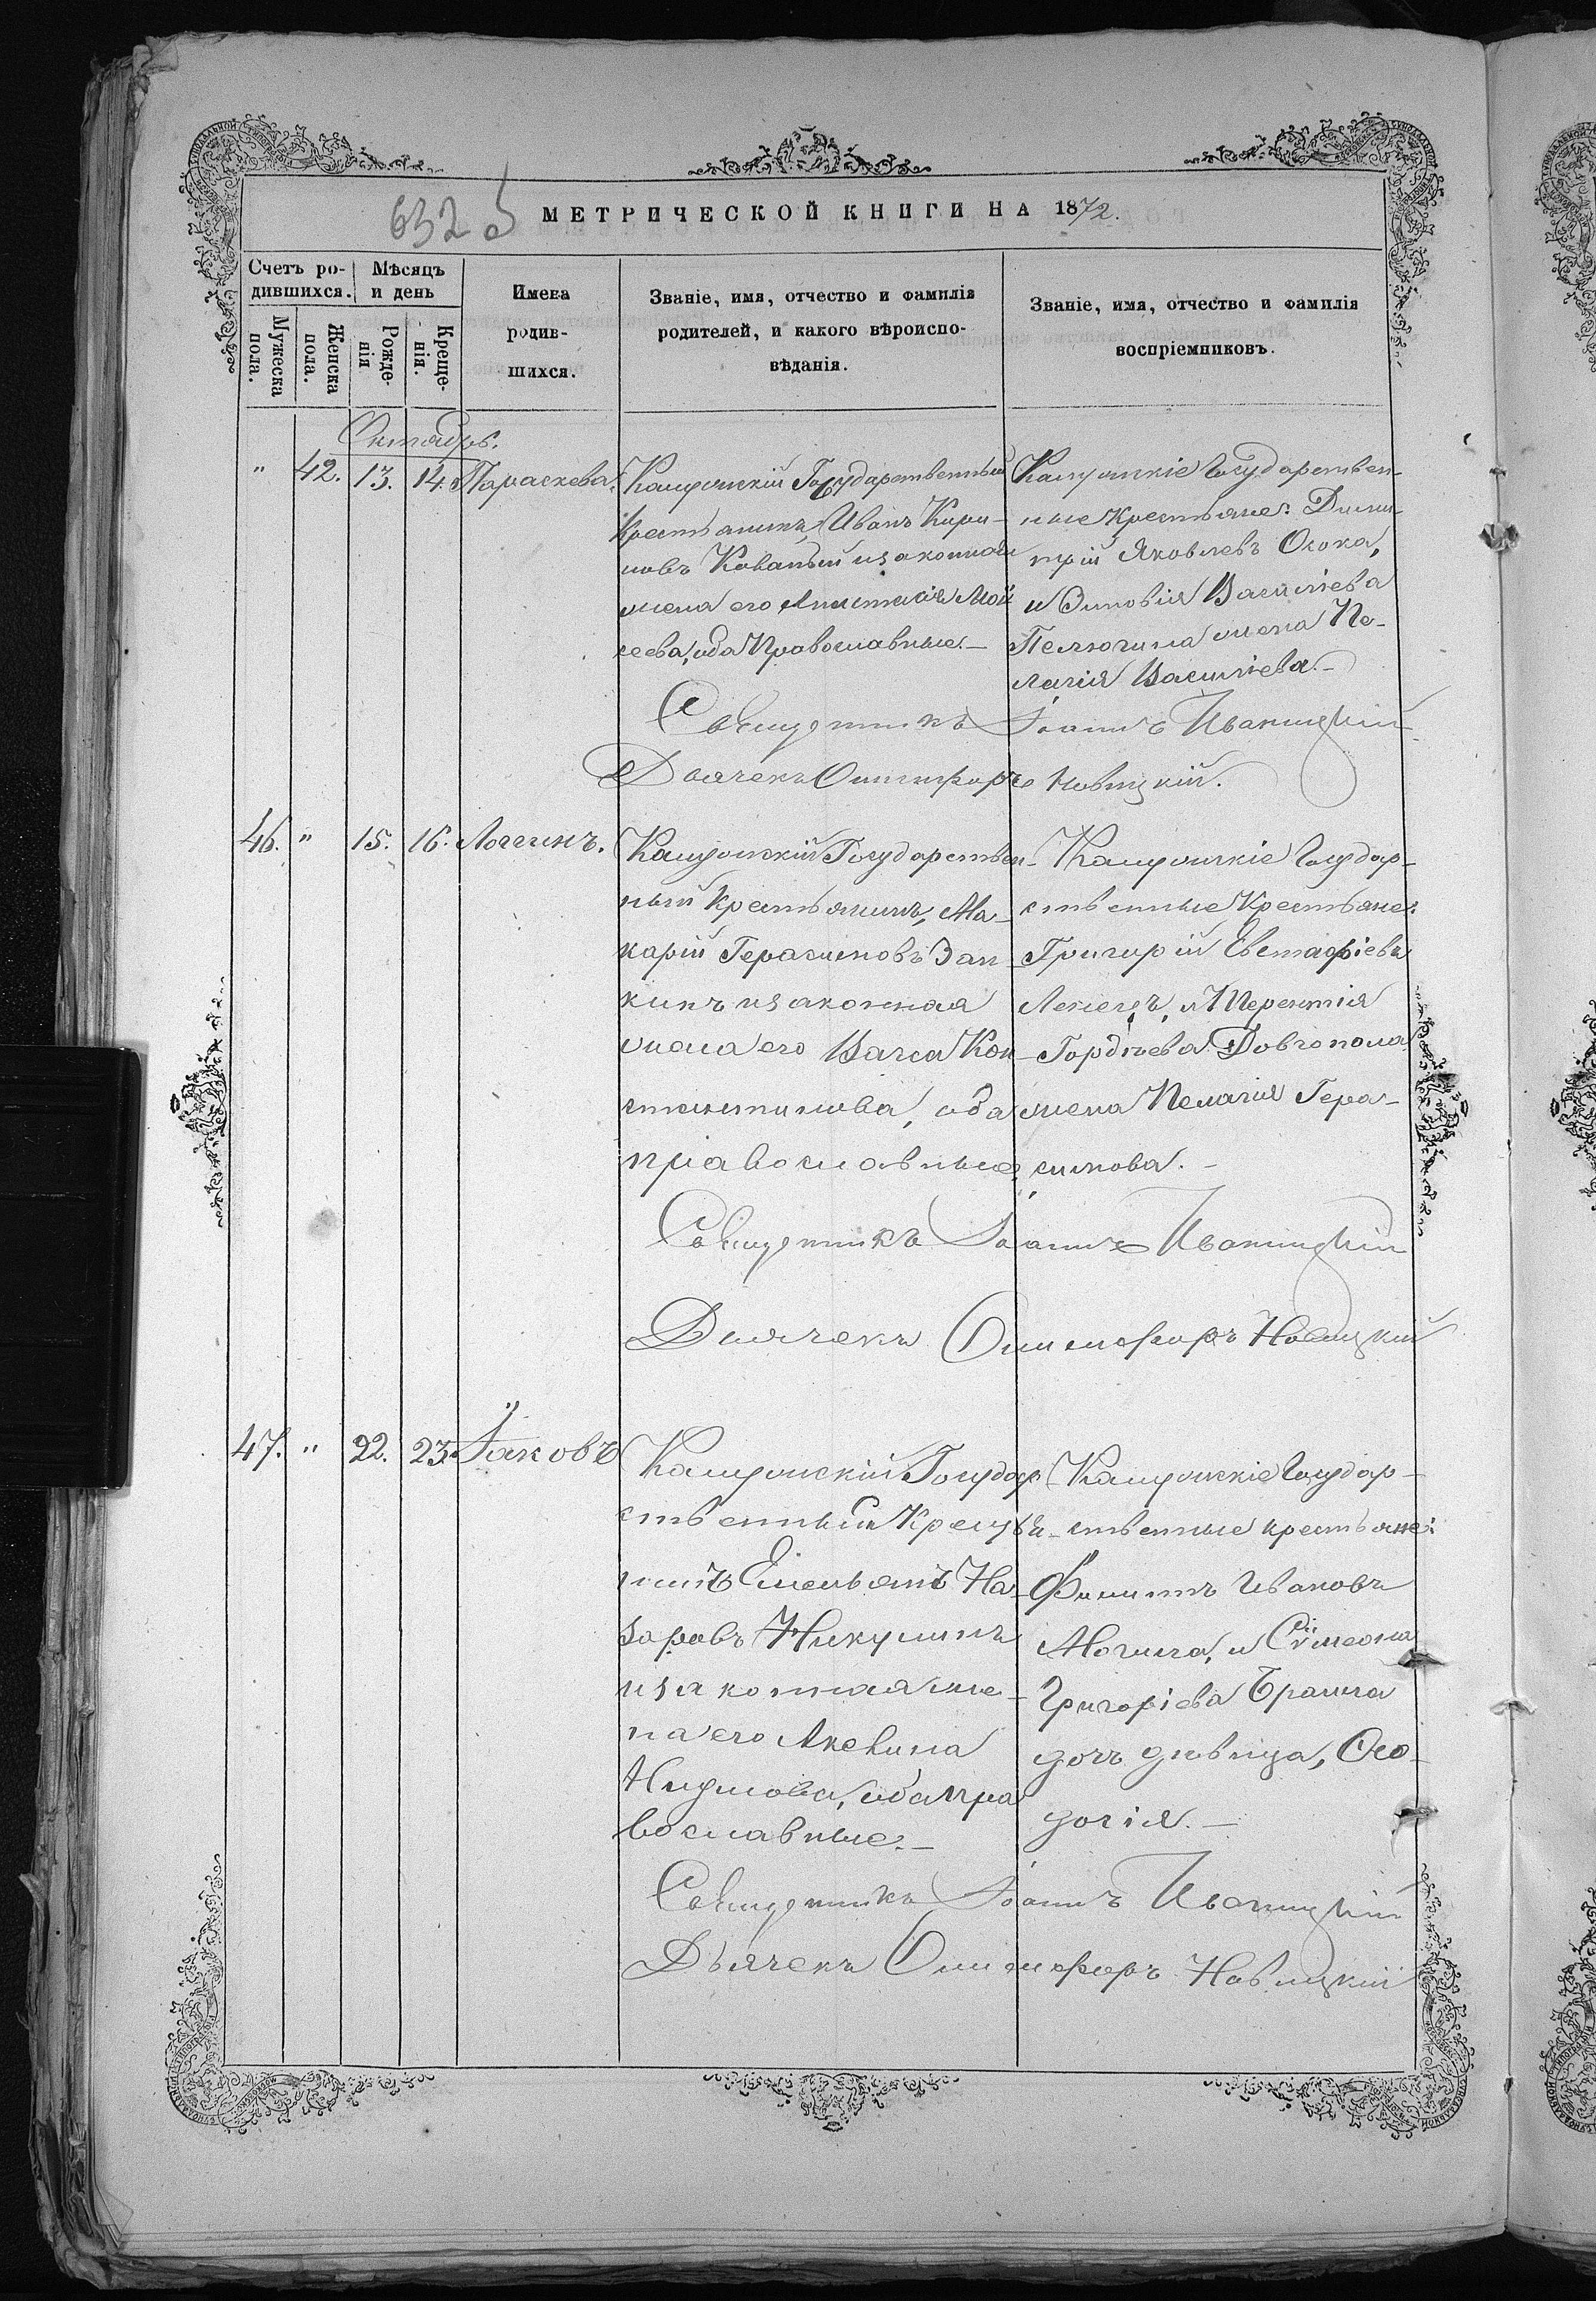 632
МЕТРИЧЕСКОЙ КНИГИ НА 1872.
Счетъ ро-
дившихся.
Мужеска
пола.
Женска
пола.
Мѣсяцъ
и день
Рожде-
нія
Креще-
нія.
Имена
родив-
шихся.
Званіе, имя, отчество и фамилія
родителей, и какого вѣроиспо-
вѣданія.
Званіе, имя, отчество и фамилія
воспріемниковъ.
Октябрь.
" 42. 13. 14. Параскева.
Государственный
Крестьянинъ, Иванъ Кири-
ловъ изаконная
жена его Анастасія Мои
сеева, оба Православные.-
Государствен-
ные крестьяне: Дими-
трій Яковлевъ Осока,
и Васильева
жена Пе-
лагія Васильева.-
Священникъ Іоаннъ Иваницкій
Дьячекъ Онисифоръ Новицкій.
46. " 15. 16. Логгинъ.
Государствен-
ный Крестьянинъ, Ма-
карій Герасимовъ Заи-
кинъ изаконная
жена его Васса Кон-
стантинова, оба
православные,
Государ-
ственные Крестьяне:
Григорій Евстафіевъ
и Терентія
Гордѣева Довгопола
жена Пелагія Гера-
симова.-
Священникъ Іоаннъ Иваницкій
Дьячекъ Онисифоръ Новицкій
47. " 22. 23. Іаковъ
Государ-
ственный Крестья-
нинъ Емельянъ На-
заровъ Никулинъ
изаконная же-
на его Акелина
Наумова, оба пра
вославные.-
Государ-
ственные крестьяне:
Филиппъ Ивановъ
Могила, и Сѵмеона
Григоріева
дочь дѣвица,
Священникъ Іоаннъ Иваницкій
Дьячекъ Онисифоръ Новицкій